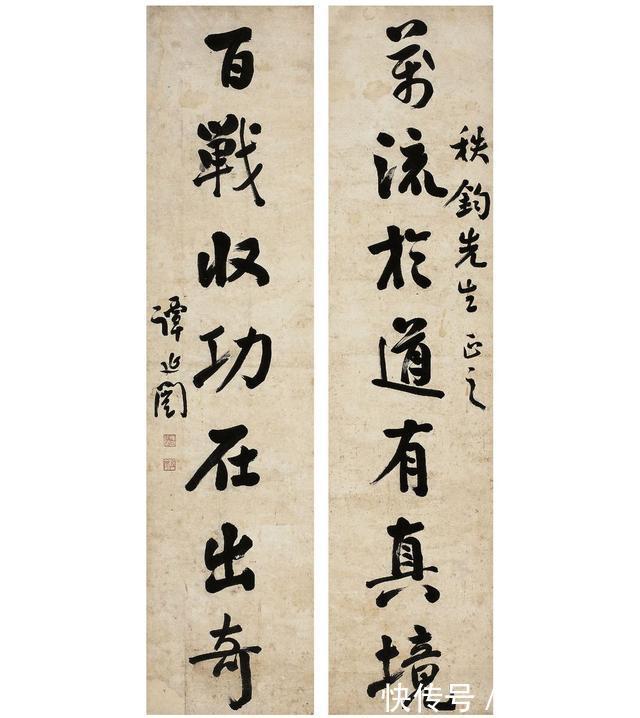 秩鈞先生正之
萬流於道有真境
百戰収功在出奇
譚延闓
快传号 /